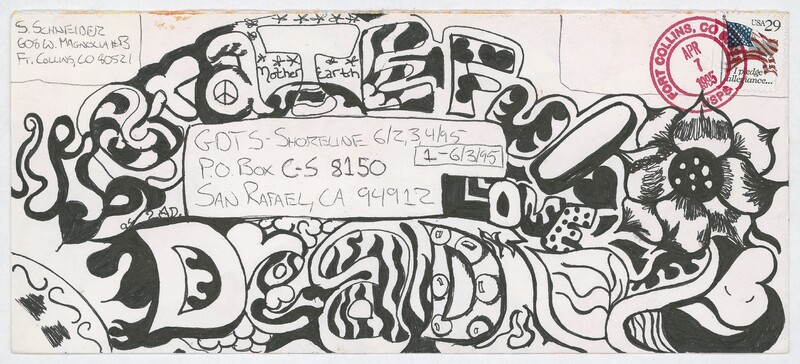 S. SCHNEIDER
608 W. MAGNOLIA #B
FT. COLLINS, CO 80521
USA 29
I pledge
allegiance...
FORT COLLINS, CO
APR
7
1995
Mother Earth
GDTS-SHORELINE 6/2,3,4/95
1-6/3/95
P.O. BOX C-S 8150
SAN RAFAEL, CA 94912
LOVE
DeaD